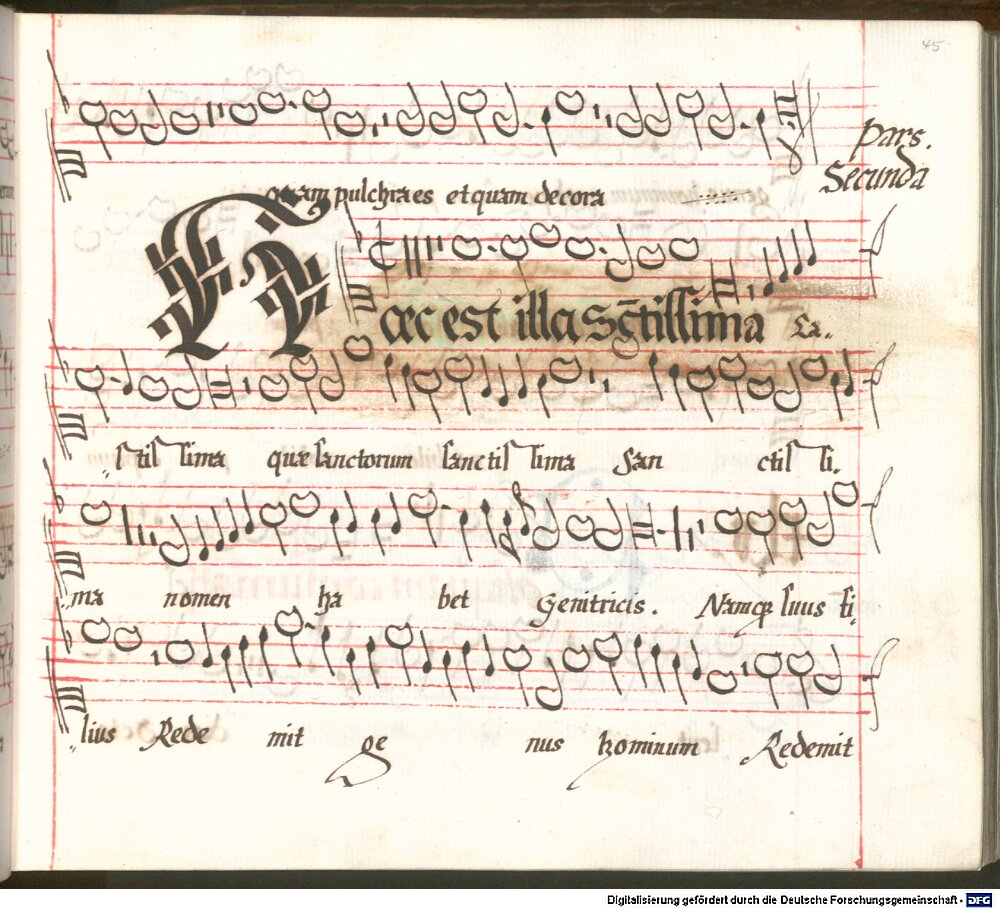 45
Pars.
Secunda
quam pulchra es et quam decora
Hæc est illa Sc̄tissima Sa..
ctis sima quæ sanctorum sanctis sima San ctis si.
ma nomen ha bet Genitricis. Namqȝ suus fi.
lius Rede mit ge nus hominum Redemit
Digitalisierung gefördert durch die Deutsche Forschungsgemeinschaft - DFG